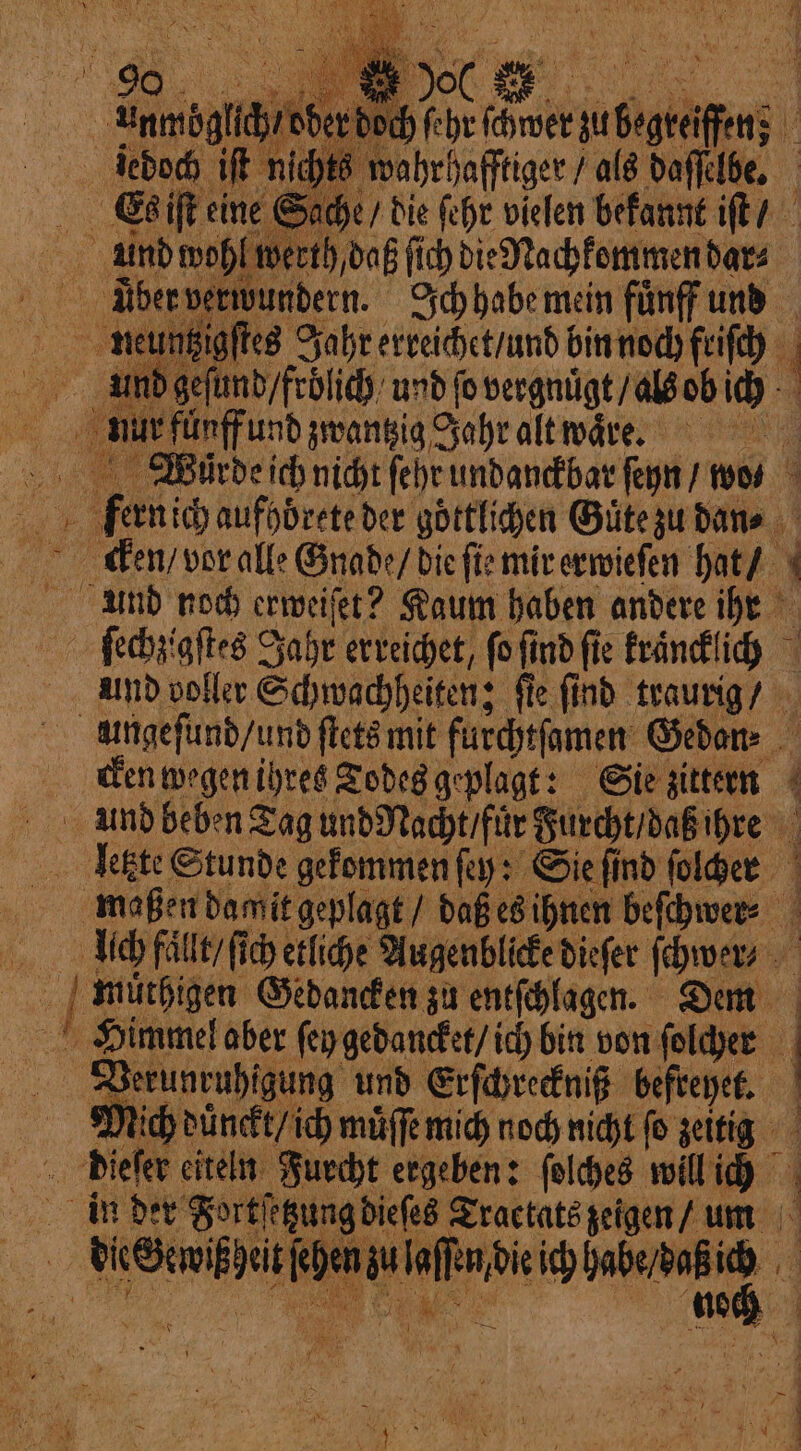 90 ❀ )o( ❀
unmöglich/ oder doch ſehr ſchwer zu begreiffen;
iedoch iſt nichts wahrhafftiger / als daſſelbe.
Es iſt eine Sache / die ſehr vielen bekannt iſt /
und wohl werth, daß ſich die Nachkommen dar⸗
über verwundern. Ich habe mein fünff und
neuntzigſtes Jahr erreichet/und bin noch friſch
und geſund/frölich/ und ſo vergnügt / als ob ich
nur fünff und zwantzig Jahr alt wäre.
Würde ich nicht ſehr undanckbar ſeyn / wo⸗
fern ich aufhörete der göttlichen Güte zu dan⸗
cken/ vor alle Gnade/ die ſie mir erwieſen hat /
und noch erweiſet? Kaum haben andere ihr
ſechzigſtes Jahr erreichet, ſo ſind ſie kräncklich
und voller Schwachheiten; ſie ſind traurig /
ungeſund/und ſtets mit furchtſamen Gedan⸗
cken wegen ihres Todes geplagt: Sie zittern
und beben Tag und Nacht/für Furcht/daß ihre
letzte Stunde gekommen ſey: Sie ſind ſolcher
maßen damit geplagt / daß es ihnen beſchwer⸗
lich fällt/ ſich etliche Augenblicke dieſer ſchwer⸗
müthigen Gedancken zu entſchlagen. Dem
Himmel aber ſey gedancket/ ich bin von ſolcher
Verunruhigung und Erſchreckniß befreyet.
Mich dünckt/ ich müſſe mich noch nicht ſo zeitig
dieſer eiteln Furcht ergeben: ſolches will ich
in der Fortſetzung dieſes Tractats zeigen / um
die Gewißheit ſehen zu laſſen, die ich habe/daß ich
noch